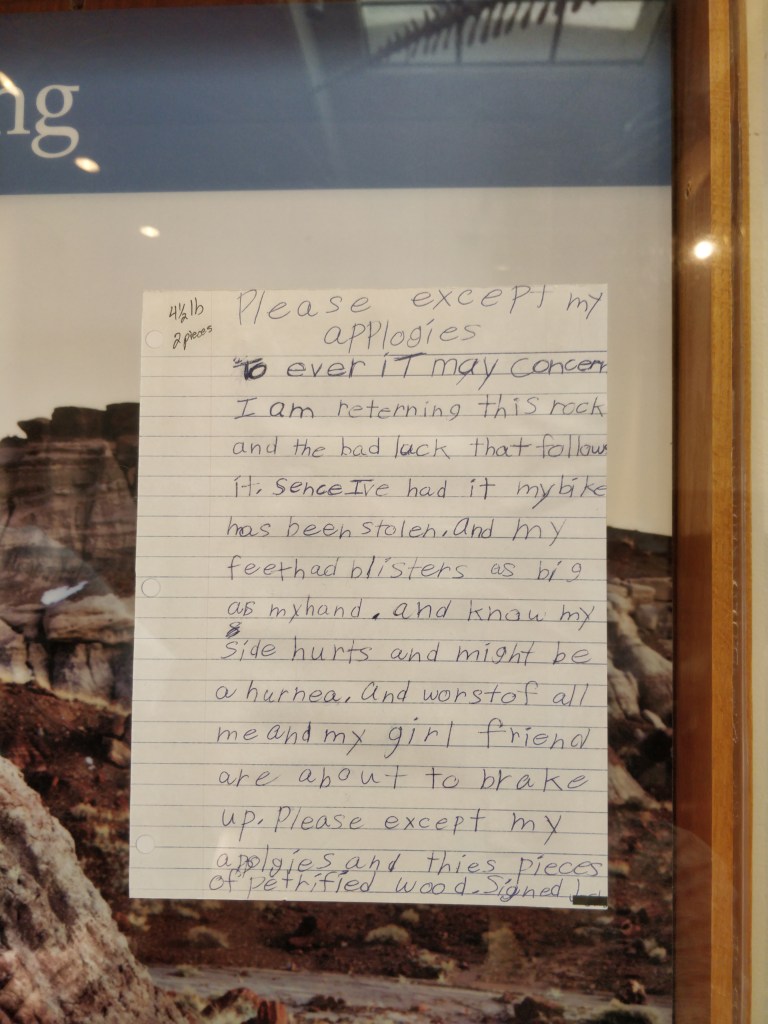 ng
4½ lb
2 pieces
Please except my
applogies
To ever iT may concern
I am reterning this rock
and the bad luck that follow
it. Sence I've had it my bike
has been stolen. And my
feet had blisters as big
as my hand. and know my
side hurts and might be
a hurnea. And worst of all
me and my girl friend
are about to brake
up. Please except my
apolgies and thies pieces
of petrified wood. Signed